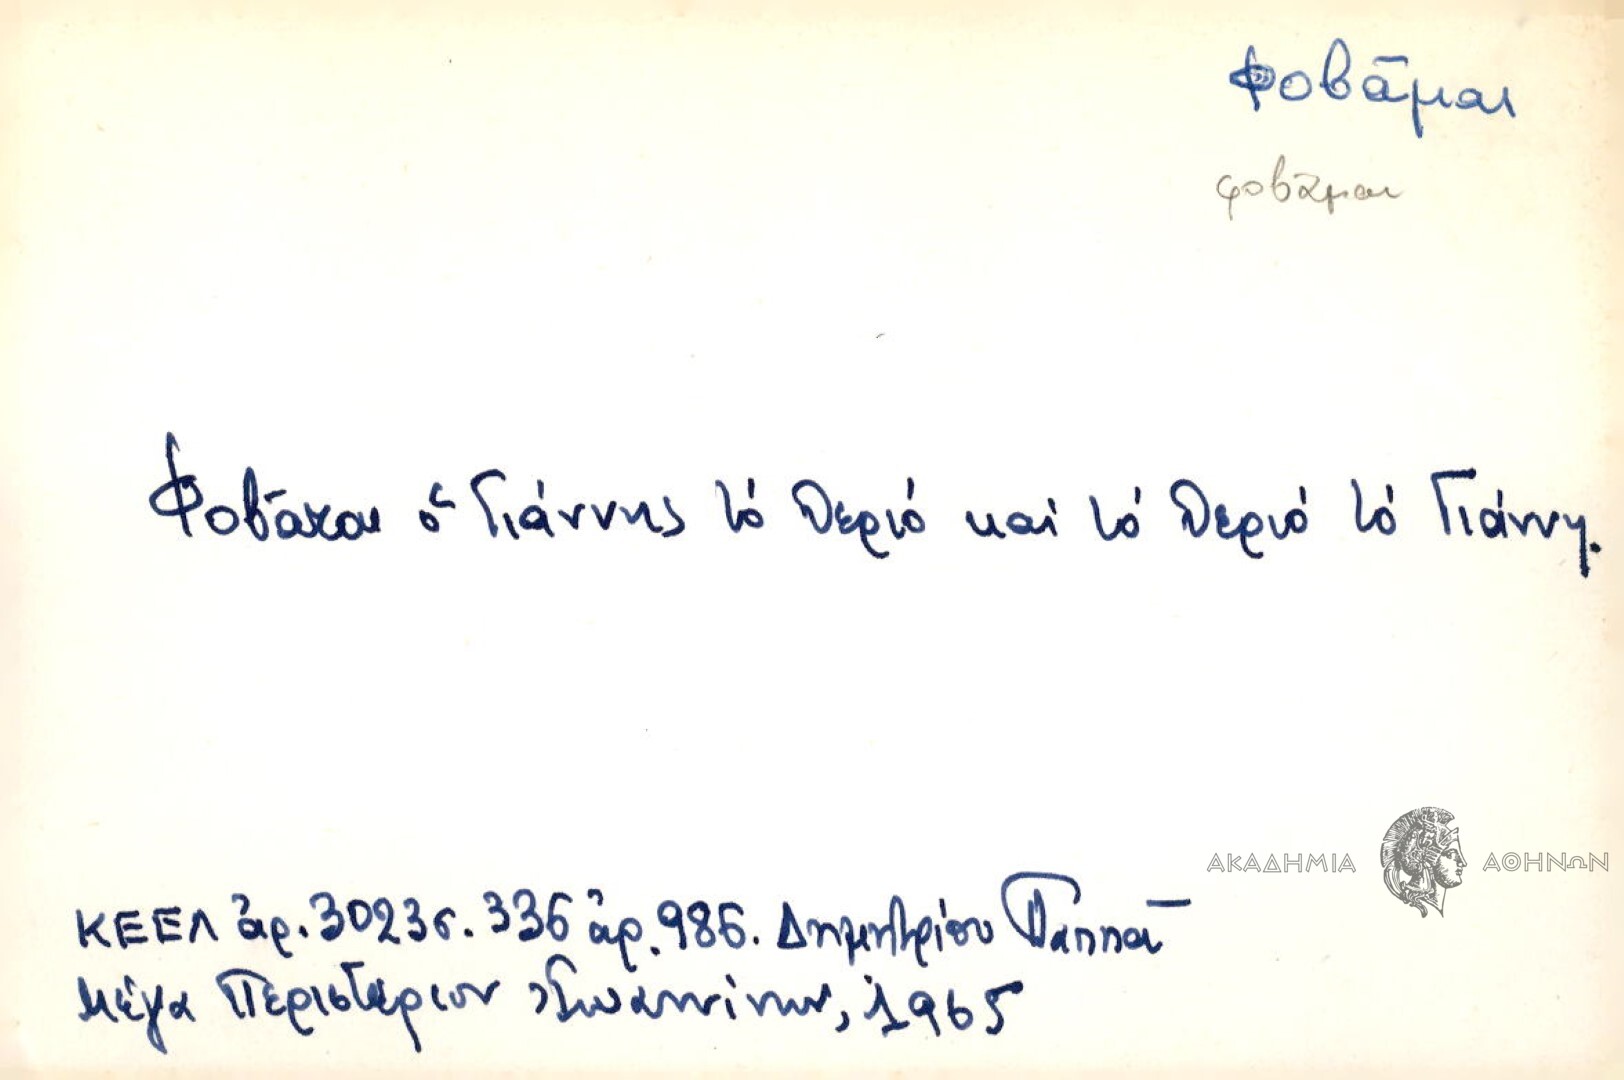 Φοβᾶμαι
φοβᾶμαι
Φοβᾶται ὁ Γιάννης τό θεριό καί τό θεριό τό Γιάννη.
ΑΚΑΔΗΜΙΑ ΑΘΗΝΩΝ
ΚΕΕΛ ἀρ. 3023 σ. 336 ἀρ. 986. Δημητρίου Παππᾶ
Μέγα Περιστέριον Ἰωαννίνων, 1965